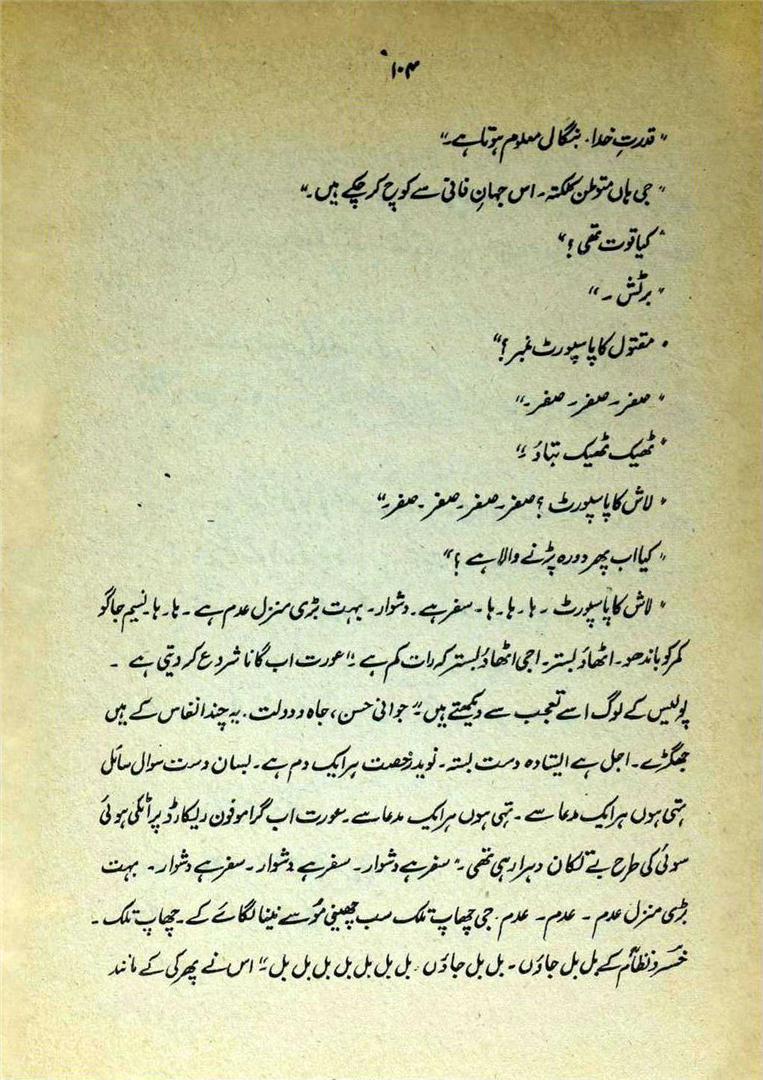 ۱۰۴
"قدرتِ خدا۔ بنگالی معلوم ہوتا ہے۔"
"جی ہاں متوطن کلکتہ۔ اس جہانِ فانی سے کوچ کر چکے ہیں۔"
"کیا قوت تھی؟"
"برٹش۔"
"مقتول کا پاسپورٹ نمبر؟"
"صفر۔ صفر۔ صفر۔"
"ٹھیک ٹھیک بتاؤ۔"
"لاش کا پاسپورٹ؟ صفر۔ صفر۔ صفر۔ صفر۔"
"کیا اب پھر دورہ پڑنے والا ہے؟"
"لاش کا پاسپورٹ ۔ ہا۔ ہا۔ ہا۔ سفر ہے۔ دشوار۔ بہت بڑی منزل عدم ہے۔ ہا۔ ہا۔ نسیم جاگو
کمر کو باندھو۔ اٹھاؤ بستر۔ اجی اٹھاؤ بستر کہ رات کم ہے۔" عورت اب گانا شروع کر دیتی ہے ۔
پولیس کے لوگ اسے تعجب سے دیکھتے ہیں۔ "جوانی حسن، جاہ و دولت۔ یہ چند انفاس کے ہیں
جھگڑے۔ اجل ہے ایستادہ دست بستہ۔ نوید رخصت ہر ایک دم ہے۔ بسان دست سوال سائل
تہی ہوں ہر ایک مدعا سے۔ تہی ہوں ہر ایک مدعا سے۔ عورت اب گراموفون ریکارڈ پر اٹکی ہوئی
سوئی کی طرح بے تکان دہرا رہی تھی۔ "سفر ہے دشوار۔ سفر ہے دشوار۔ سفر ہے دشوار۔ بہت
بڑی منزل عدم ۔ عدم۔ عدم۔ جی چھاپ تلک سب چھینی مؤسے نینا لگائے کے۔ چھاپ تلک۔
خسرو نظام کے بل بل جاؤں۔ بل بل جاؤں۔ بل بل بل بل بل بل بل۔" اس نے پھرکی کے مانند